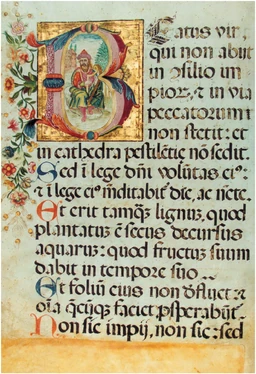 Beatus vir,
qui non abiit
in ɔsilio im
pioꝝ, ⁊ in via
peccatorum
non stetit: et
in cathedra pestilẽtie nõ sedit.
Sed ĩ lege dñi volũtas eiꝰ:
⁊ ĩ lege eiꝰ meditabit̃ die, ac nocte.
Et erit tamqᷓ lignuꝫ, quod
plantatuꝫ ẽ secus decursus
aquaruꝫ: quod fructuꝫ suum
dabit in tempore suo
Et foliũ eius non dẽfluet: ⁊
oĩa q̃cũqꝫ faciet ꝓsperabũt̃.
Non sic impij, non sic: sed